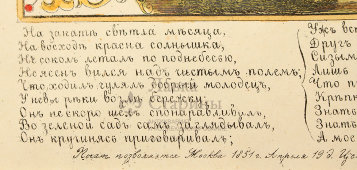 На закатѣ свѣтла мѣсяца,
На восходѣ красна солнышка,
Не соколъ леталъ по поднебесью,
Не ясенъ вился надъ чистымъ полемъ;
Что ходилъ гулялъ добрый молодецъ,
У Невы рѣки возлѣ бережку.
Онъ не скоро шелъ
Во зеленой садъ самъ заглядывалъ,
Онъ кручинясь приговаривалъ;
Ужъ
Другъ
Сизымъ
Лишь
Что
Крѣпк
Знать
Знать
А мое
Печат. позволяется Москва 1851 г. Апрѣля 19 д. Це